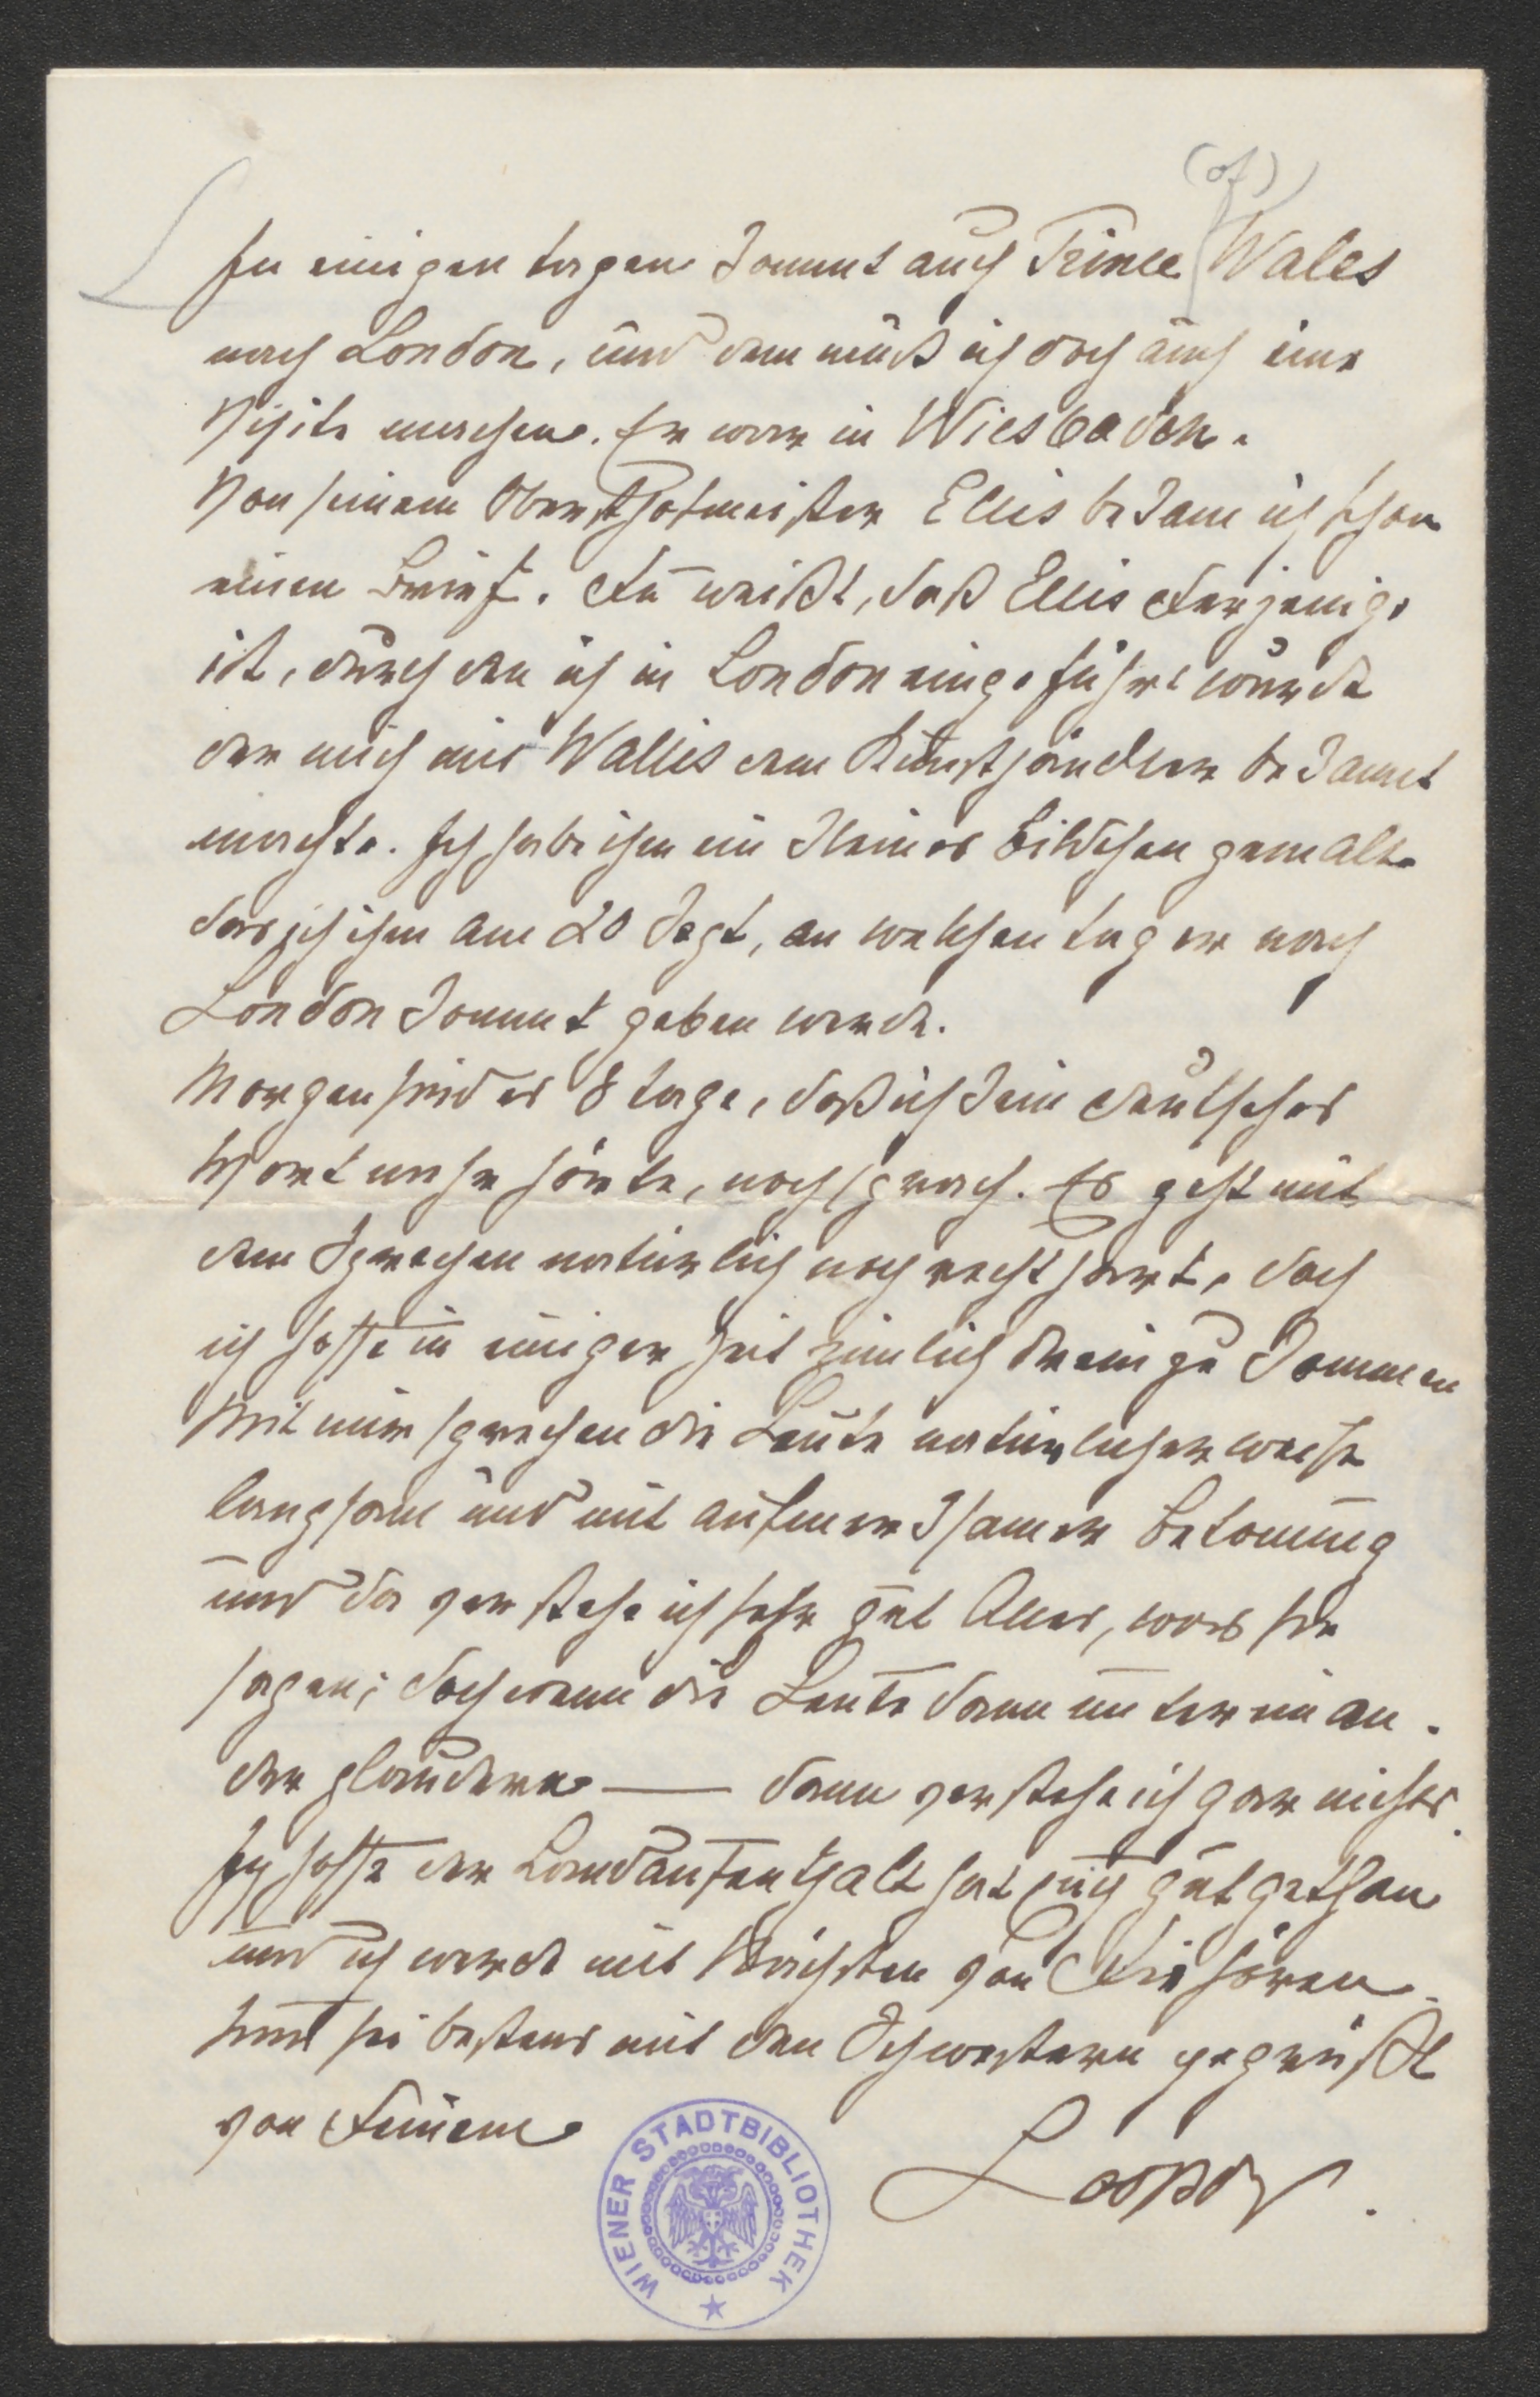 (of)
In einigen Tagen kommt auch Prince Wales
nach London, und dem muß ich doch auch eine
Visite machen. Er war in Wiesbaden.
Von seinem Obersthofmeister Ellis bekam ich schon
einen Brief. Du weißt, daß Ellis derjenige
ist, durch den ich in London eingeführt wurde
der mich mit Wallis dem Kunsthändler bekannt
machte. Ich habe ihm ein kleines Bildchen gemalt
das ich ihm am 20 Sept, an welchen Tag er nach
London kommt geben werde.
Morgen sind es 8 Tage, daß ich kein deutsches
Wort mehr hörte, noch sprach. Es geht mit
dem Sprechen natürlich noch recht hart, doch
ich hoffe in einiger Zeit zimlich drein zu kommen
Mit mir sprechen die Leute natürlicherweise
langsam und mit aufmerksamer Betonung
und da verstehe ich sehr gut Alles, was sie
sagen; doch wenn die Leute dann unterein an-
der plaudern — dann verstehe ich gar nichts.
Ich hoffe der Landaufenthalt hat Euch gut gethan
und ich werde mit Nächsten von Dir hören.
Nun sei bestens mit den Schwestern gegrüßt
von Deinem
Leopold.
WIENER STADTBIBLIOTHEK